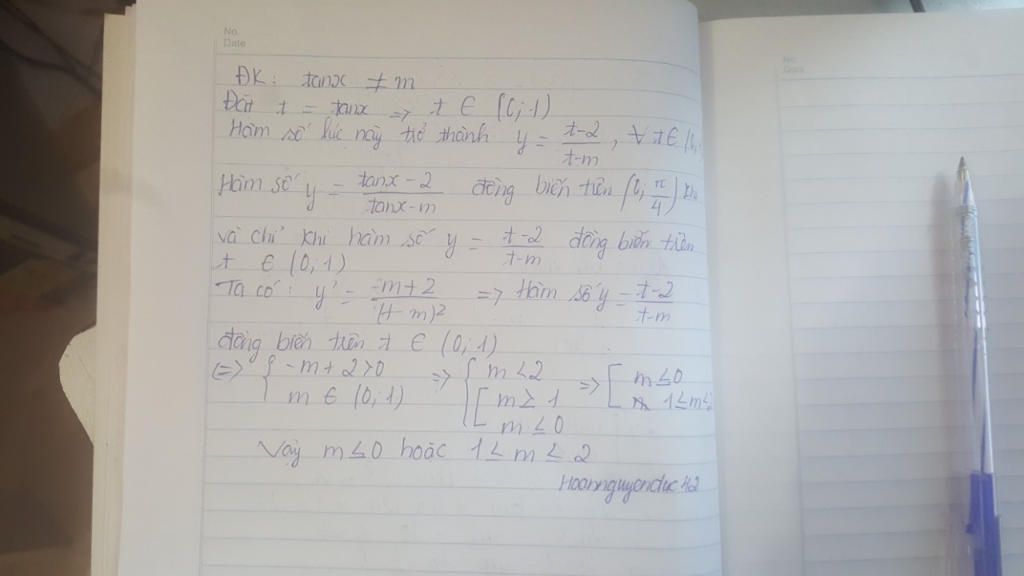 No.
Date
ĐK: tanx ≠ m
Đặt t = tanx => t ∈ (0; 1)
Hàm số lúc này trở thành y = \frac{t-2}{t-m}, ∀ t ∈ (0;
Hàm số y = \frac{tanx-2}{tanx-m} đồng biến trên (0; \frac{π}{4}) khi
và chỉ khi hàm số y = \frac{t-2}{t-m} đồng biến trên
t ∈ (0; 1)
Ta có: y' = \frac{-m+2}{(t-m)^2} => Hàm số y = \frac{t-2}{t-m}
đồng biến trên t ∈ (0; 1)
<=> { -m+2>0 => { m < 2 => [ m ≤ 0
m ∈ (0; 1) [ m ≥ 1 1 ≤ m <
m ≤ 0
Vậy m ≤ 0 hoặc 1 ≤ m ≤ 2
No.
Date